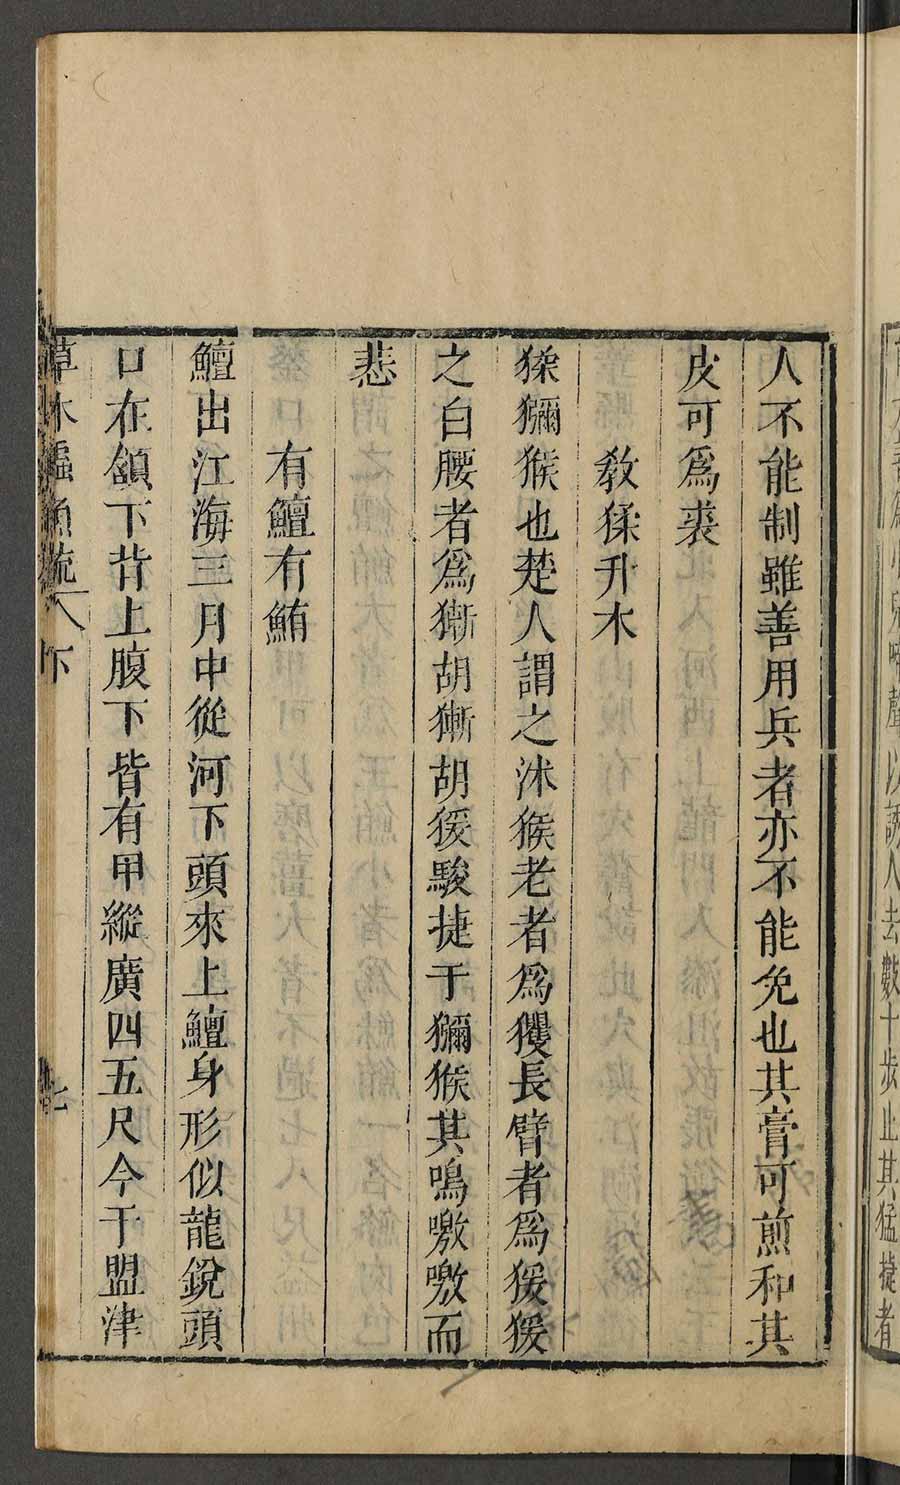 人不能制雖善用兵者亦不能免也其膏可煎和其
皮可爲裘
教猱升木
猱獼猴也楚人謂之沐猴老者爲玃長臂者爲猨猨
之白腰者爲獑胡獑胡猨駿捷于獼猴其鳴噭噭而
悲
有鱣有鮪
鱣出江海三月中從河下頭來上鱣身形似龍銳頭
口在頷下背上腹下皆有甲縱廣四五尺今于盟津
草木蟲魚疏 下 七